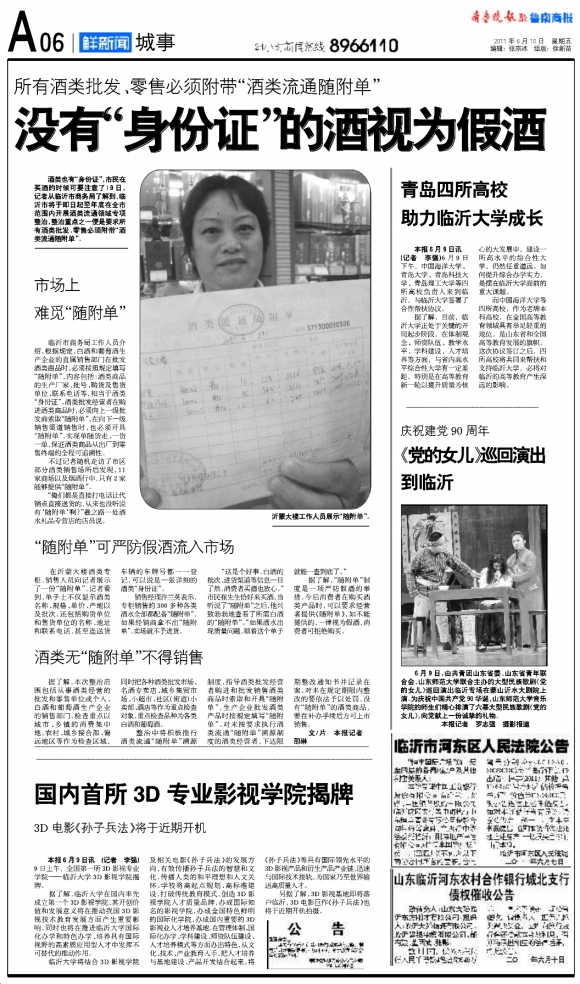 A06
鲜新闻 城事
24小时新闻热线 8966110
齐鲁晚报 鲁南商报
2011年6月10日 星期五
编辑：张宗冰 组版：徐新苗
所有酒类批发、零售必须附带“酒类流通随附单”
没有“身份证”的酒视为假酒
酒类也有“身份证”，市民在
买酒的时候可要注意了！9日，
记者从临沂市商务局了解到，临
沂市将于即日起至年底在全市
范围内开展酒类流通领域专项
整治，整治重点之一便是要求所
有酒类批发、零售必须附带“酒
类流通随附单”。
市场上
难觅“随附单”
临沂市商务局工作人员介
绍，根据规定，白酒和葡萄酒生
产企业的直属销售部门在批发
酒类商品时，必须按照规定填写
“随附单”，内容包括：酒类商品
的生产厂家、批号、购货及售货
单位、联系电话等，相当于酒类
“身份证”。酒类批发经营者在购
进酒类商品时，必须向上一级批
发商索取“随附单”，在向下一级
销售渠道销售时，也必须开具
“随附单”，实现单随货走，一货
一单，保证酒类商品从出厂到零
售终端的全程可追溯性。
不过记者随机走访了市区
部分酒类销售场所后发现，11
家商场以及烟酒行中，只有2家
能够提供“随附单”。
“俺们都是直接打电话让代
销点直接送货的，从来也没听说
有‘随附单’啊？”羲之路一处酒
水礼品专营店的店员说。
酒类流通随附单
371300030306
沂蒙大楼工作人员展示“随附单”。
“随附单”可严防假酒流入市场
在沂蒙大楼酒类专
柜，销售人员向记者展示
了一份“随附单”，记者看
到，单子上不仅显示酒类
名称、规格、单价、产地以
及批次，还包括购货单位
和售货单位的名称、地址
和联系电话，甚至连送货
车辆的车牌号都一一登
记，可以说是一张详细的
酒类“身份证”。
销售经理许兰英表示，
专柜销售的300多种各类
酒水全部都配备“随附单”，
如果经销商拿不出“随附
单”，卖场就不予进货。
“这是个好事，白酒的
批次、进货渠道等信息一目
了然，消费者买酒也放心。”
市民崔先生恰好来买酒，当
听说了“随附单”之后，他兴
致勃勃地查看了所需白酒
的“随附单”，“如果酒水出
现质量问题，顺着这个单子
就能一查到底了。”
据了解，“随附单”制
度是一项严防假酒的举
措，今后消费者在购买酒
类产品时，可以要求经营
者提供《随附单》，如不能
提供的，一律视为假酒，消
费者可拒绝购买。
酒类无“随附单”不得销售
据了解，本次整治范
围包括从事酒类经营的
批发和零售单位或个人，
白酒和葡萄酒生产企业
的销售部门，检查重点以
城市、乡镇的消费集中
地、农村、城乡接合部、偏
远地区等作为检查区域，
同时把各种酒类批发市场、
名酒专卖店、城乡集贸市
场、小超市、社区(街道)小
卖部、酒店等作为重点检查
对象，重点检查品种为各类
白酒和葡萄酒。
整治中将积极推行
酒类流通“随附单”溯源
制度，指导酒类批发经营
者购进和批发销售酒类
商品时索取和开具“随附
单”，生产企业批发酒类
产品时按规定填写“随附
单”，对未按要求执行酒
类流通“随附单”溯源制
度的酒类经营者，下达限
期整改通知书并记录在
案，对未在规定期限内整
改的要依法予以处罚，没
有“随附单”的酒类商品，
要在补办手续后方可上市
销售。
文/片 本报记者
邵琳
青岛四所高校
助力临沂大学成长
本报6月9日讯
(记者 李强)6月9日
下午，中国海洋大学、
青岛大学、青岛科技大
学、青岛理工大学等四
所高校负责人来到临
沂，与临沂大学签署了
合作帮扶协议。
据了解，目前，临
沂大学正处于关键的开
局起步阶段，在体制观
念、师资队伍、教学水
平、学科建设、人才培
养等方面，与省内高水
平综合性大学有一定差
距，特别是在高等教育
新一轮以提升质量为核
心的大发展中，建设一
所高水平的综合性大
学，仍然任重道远。如
何提升综合办学实力，
是摆在临沂大学面前的
重大课题。
而中国海洋大学等
四所高校，作为老牌本
科高校，在全国高等教
育领域具有举足轻重的
地位，是山东省和全国
高等教育发展的旗帜。
这次协议签订之后，四
所高校将共同来帮扶和
支持临沂大学，必将对
临沂的高等教育产生深
远的影响。
庆祝建党90周年
《党的女儿》巡回演出
到临沂
6月9日，由共青团山东省委、山东省青年联
合会、山东师范大学联合主办的大型民族歌剧《党
的女儿》巡回演出临沂专场在蒙山沂水大剧院上
演，为庆祝中国共产党90华诞，山东师范大学音乐
学院的师生们精心排演了六幕大型民族歌剧《党的
女儿》，向党献上一份诚挚的礼物。
本报记者 罗志强 摄影报道
国内首所3D专业影视学院揭牌
3D电影《孙子兵法》将于近期开机
本报6月9日讯(记者 李强)
9日上午，全国第一所3D影视专业
学院——临沂大学3D影视学院揭
牌。
据了解，临沂大学在国内率先
成立第一个3D影视学院，其开创价
值和发展意义将在推动我国3D影
视技术教育发展方面产生重要影
响。同时也将在推进临沂大学国际
化办学和特色办学、培养具有国际
视野的高素质应用型人才中发挥不
可替代的推动作用。
临沂大学将结合3D影视学院
及相关电影《孙子兵法》的发展方
向，有效传播孙子兵法的智慧和文
化，传播人类的和平理想和人文关
怀。学校将高起点规划、高标准建
设，打破传统教育模式，创造3D影
视学院人才质量品牌，办成国际知
名的影视学院，办成全国特色鲜明
的国际化学院，办成国内重要的3D
影视业人才培养基地。在管理体制、国
际化办学、学科建设、师资队伍建设、
人才培养模式等方面办出特色，从文
化、技术、产业教育入手，把人才培养
与基地建设、产品开发结合起来，将
《孙子兵法》等具有国际领先水平的
3D影视产品和衍生产品产业链，迅速
与国际技术接轨，为国家乃至世界输
送高质量人才。
另据了解，3D影视基地即将落
户临沂，3D电影巨作《孙子兵法》也
将于近期开机拍摄。
公告
临沂市河东区人民法院公告
山东临沂河东农村合作银行城北支行
债权催收公告